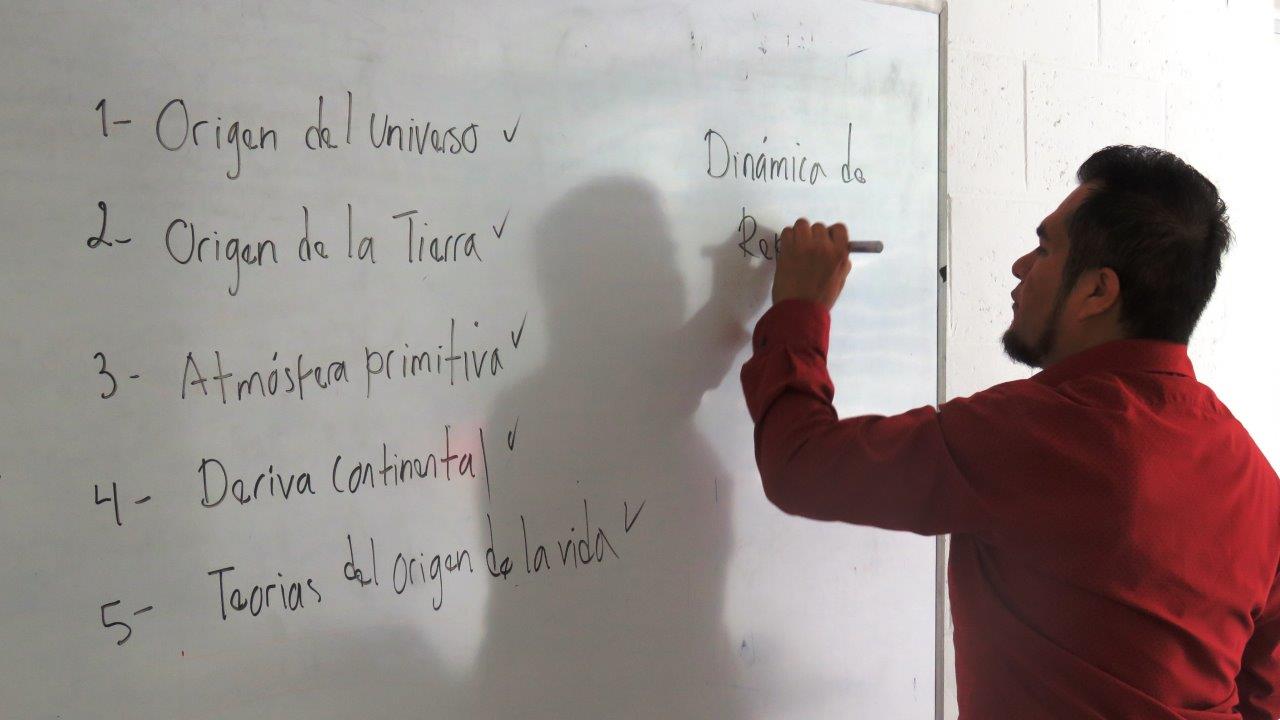 1- Origen del Universo ✓
2- Origen de la Tierra ✓
3- Atmósfera primitiva ✓
4- Deriva continental ✓
5- Teorias del origen de la vida ✓
Dinámica de